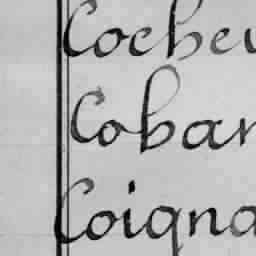 Cochev
Coban
Coigna